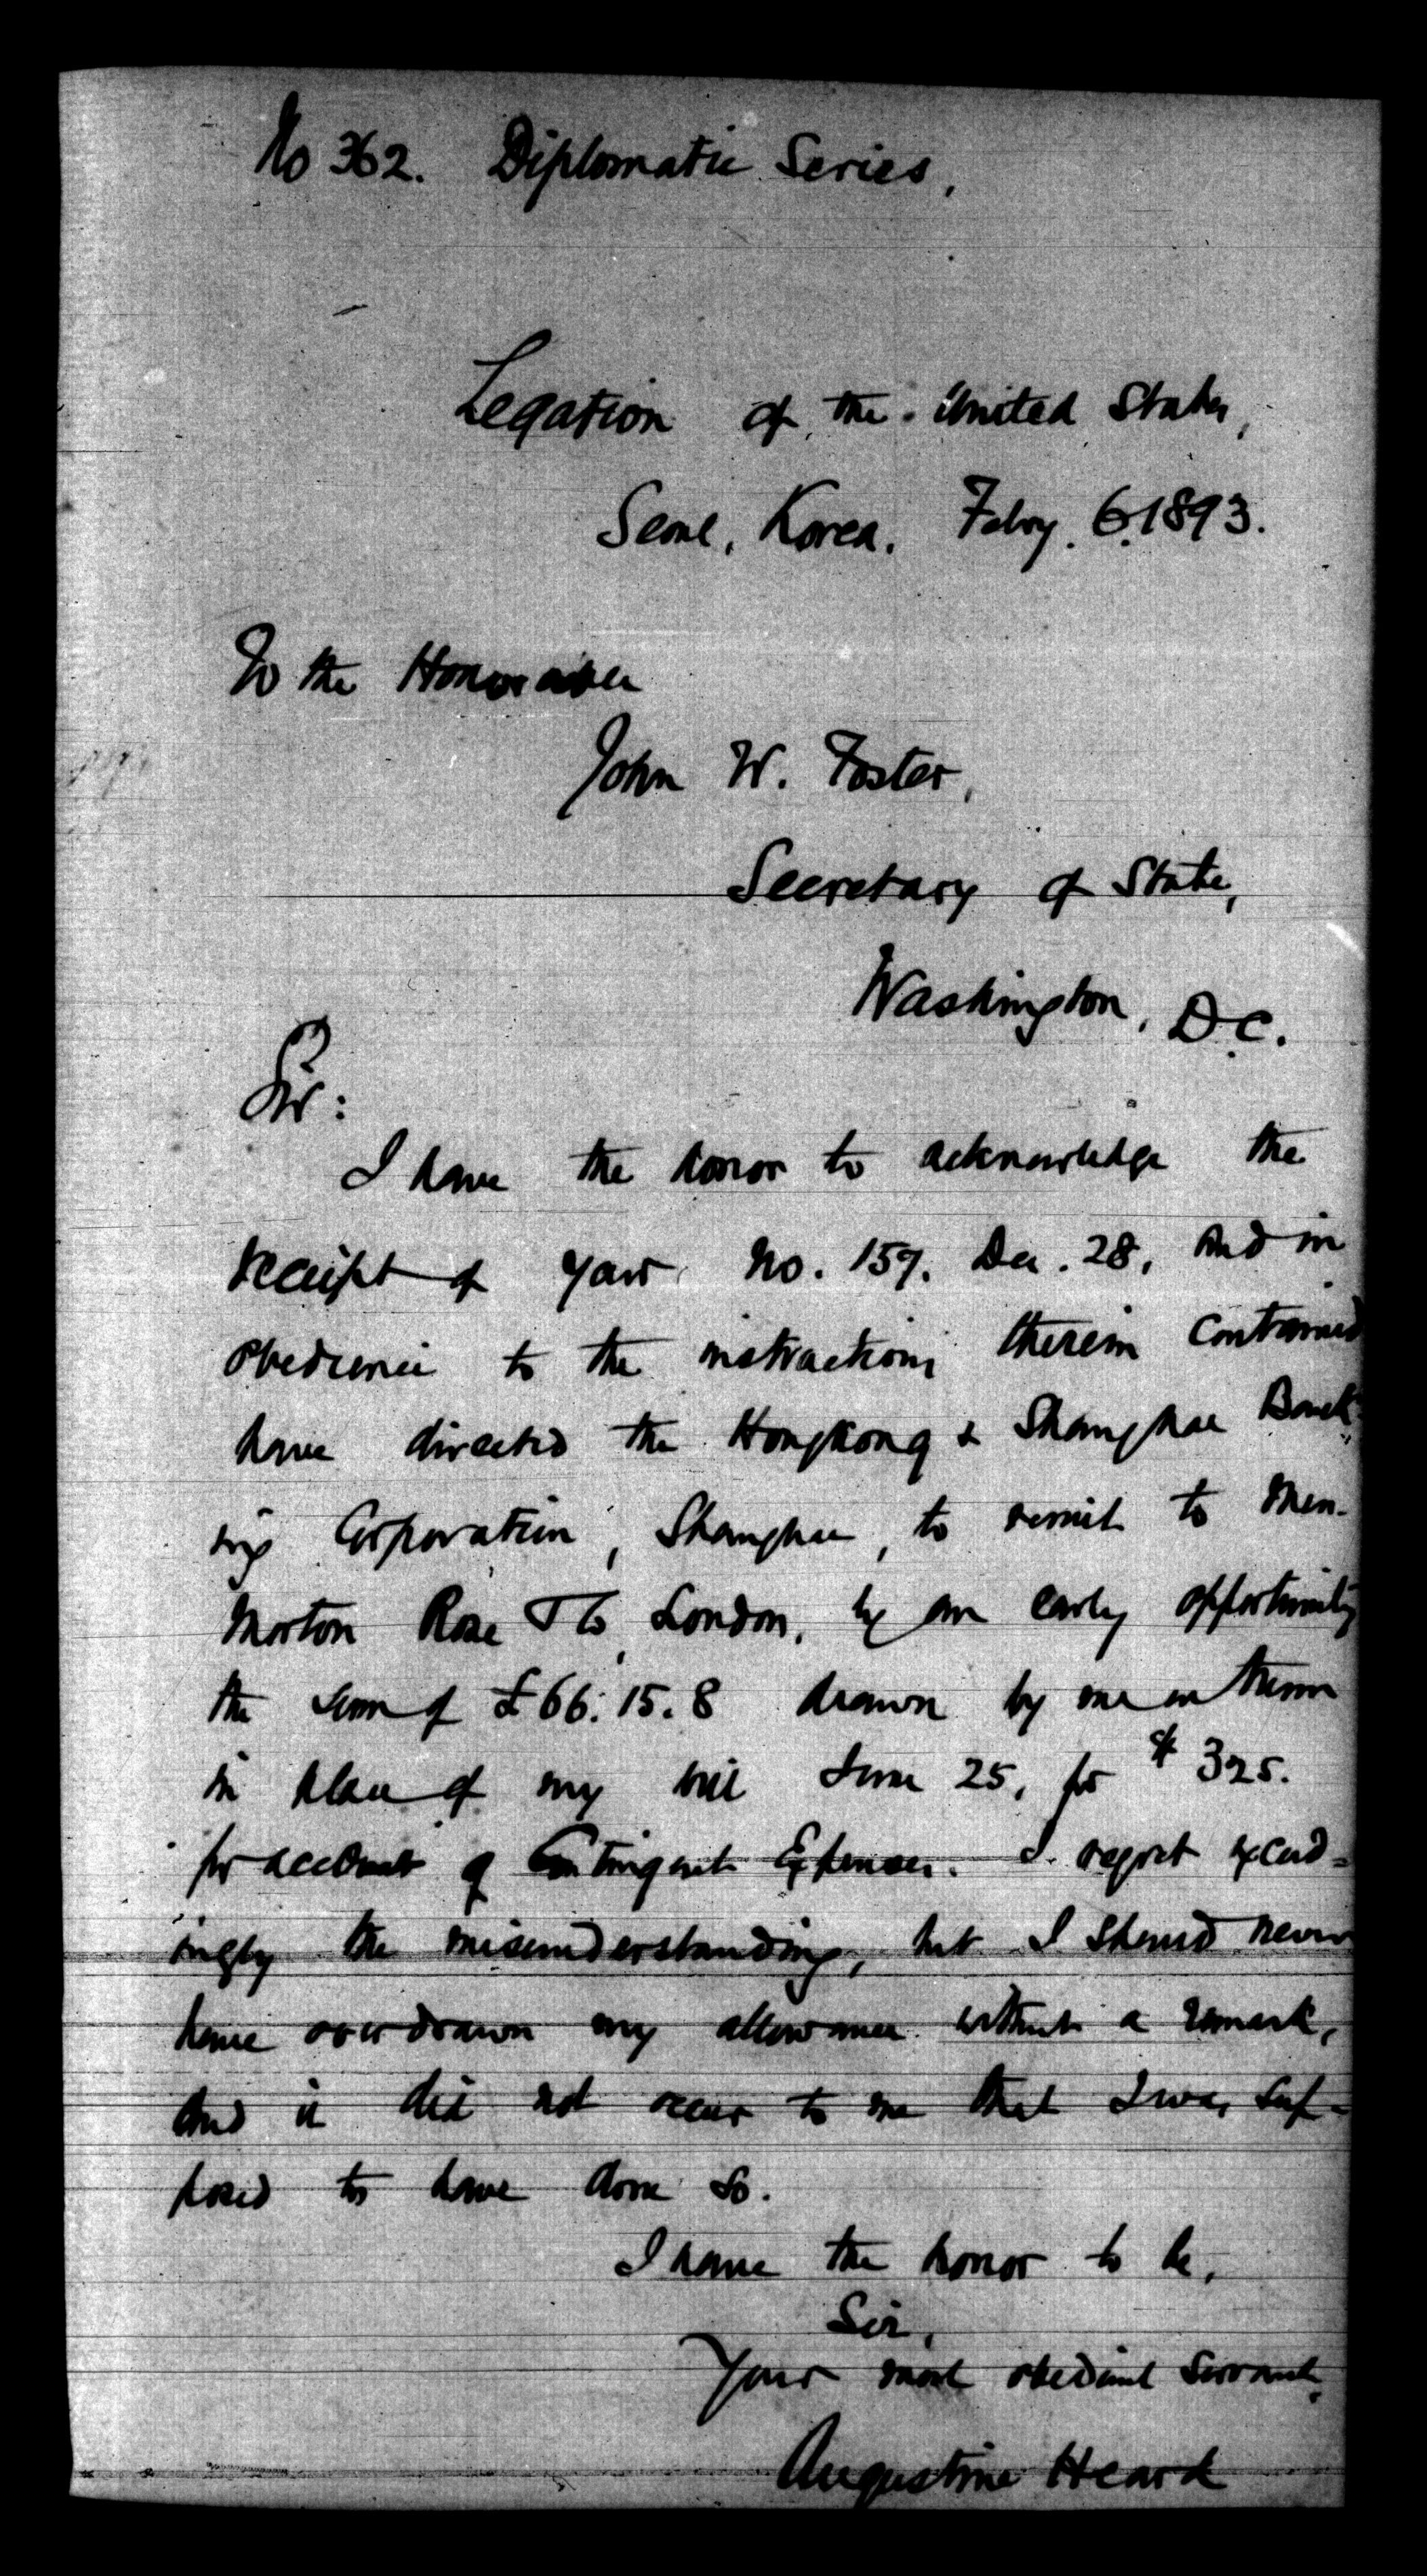 No 362. Diplomatic Series,
Legation of the United States,
Seoul, Korea. Febry. 6. 1893.
To the Honorable
John W. Foster,
Secretary of State,
Washington, D.C.
Sir:
I have the honor to acknowledge the
receipt of your No. 157. Dec. 28, and in
obedience to the instructions therein contained
have directed the Hongkong & Shanghae Bank-
ing Corporation, Shanghae, to remit to Mess.
Morton Rose & Co, London, by an early opportunity
the sum of £66.15.8 drawn by me on them
in place of my bill June 25, for $325.
for account of Contingent Expenses. I regret exceed-
ingly the misunderstanding, but I should never
have overdrawn my allowance without a remark,
and it did not occur to me that I was sup-
posed to have done so.
I have the honor to be,
Sir,
Your most obedient servant,
Augustine Heard